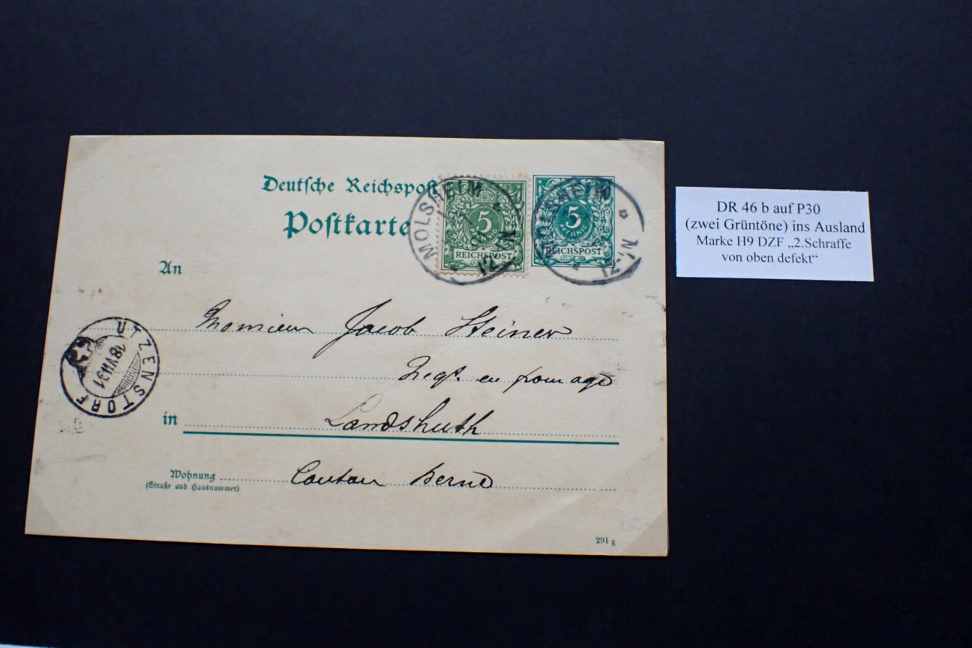 Deutsche Reichspost
Postkarte
5
REICHSPOST
5
REICHSPOST
MOLSHEIM
MOLSHEIM
An
Monsieur Jacob Steiner
Negt. en fromage
in Landshuth
Wohnung
(Straße und Hausnummer)
Canton Berne
291 g
UTZENSTORF
DR 46 b auf P30
(zwei Grüntöne) ins Ausland
Marke H9 DZF „2.Schraffe
von oben defekt“